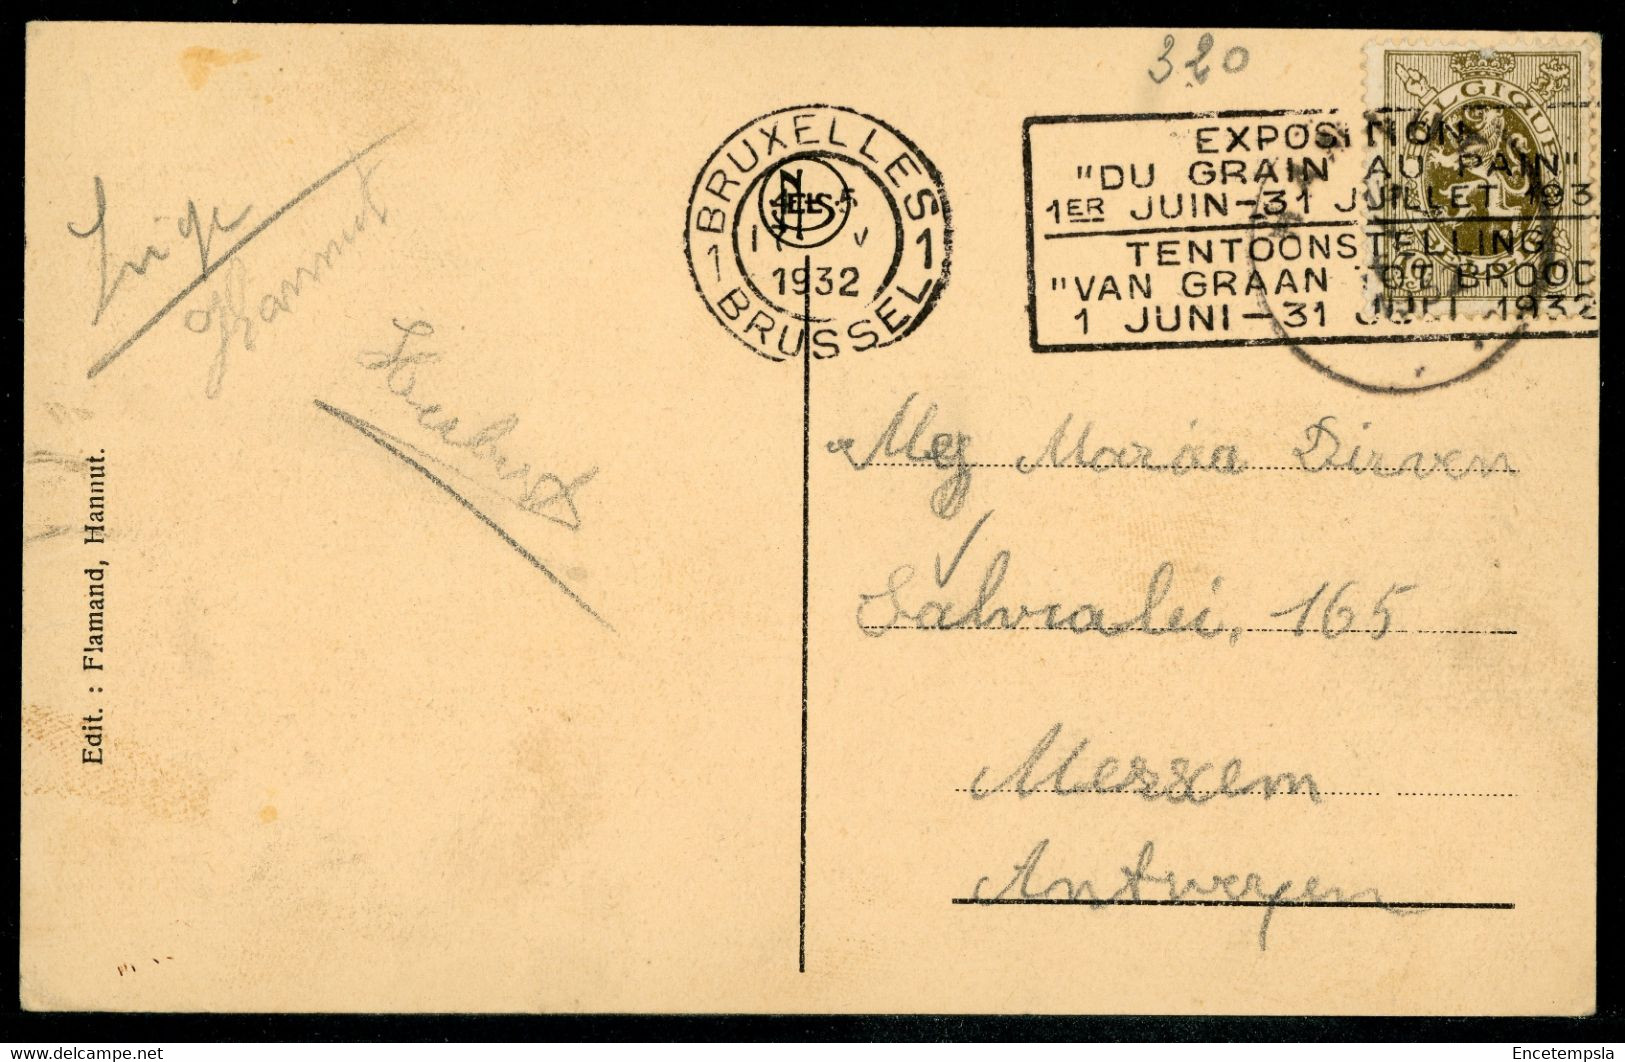 320
BRUXELLES 1
1 BRUSSEL 1
NELS
V
1932
EXPOSITION
"DU GRAIN AU PAIN"
1ER JUIN-31 JUILLET 193
TENTOONSTELLING
"VAN GRAAN TOT BROOD
1 JUNI-31 JULI 1932
BELGIQUE
Hannut
Edit. : Flamand, Hannut.
Mej Maria Dirven
165
Merxem
Antwerpen
Encetempsla